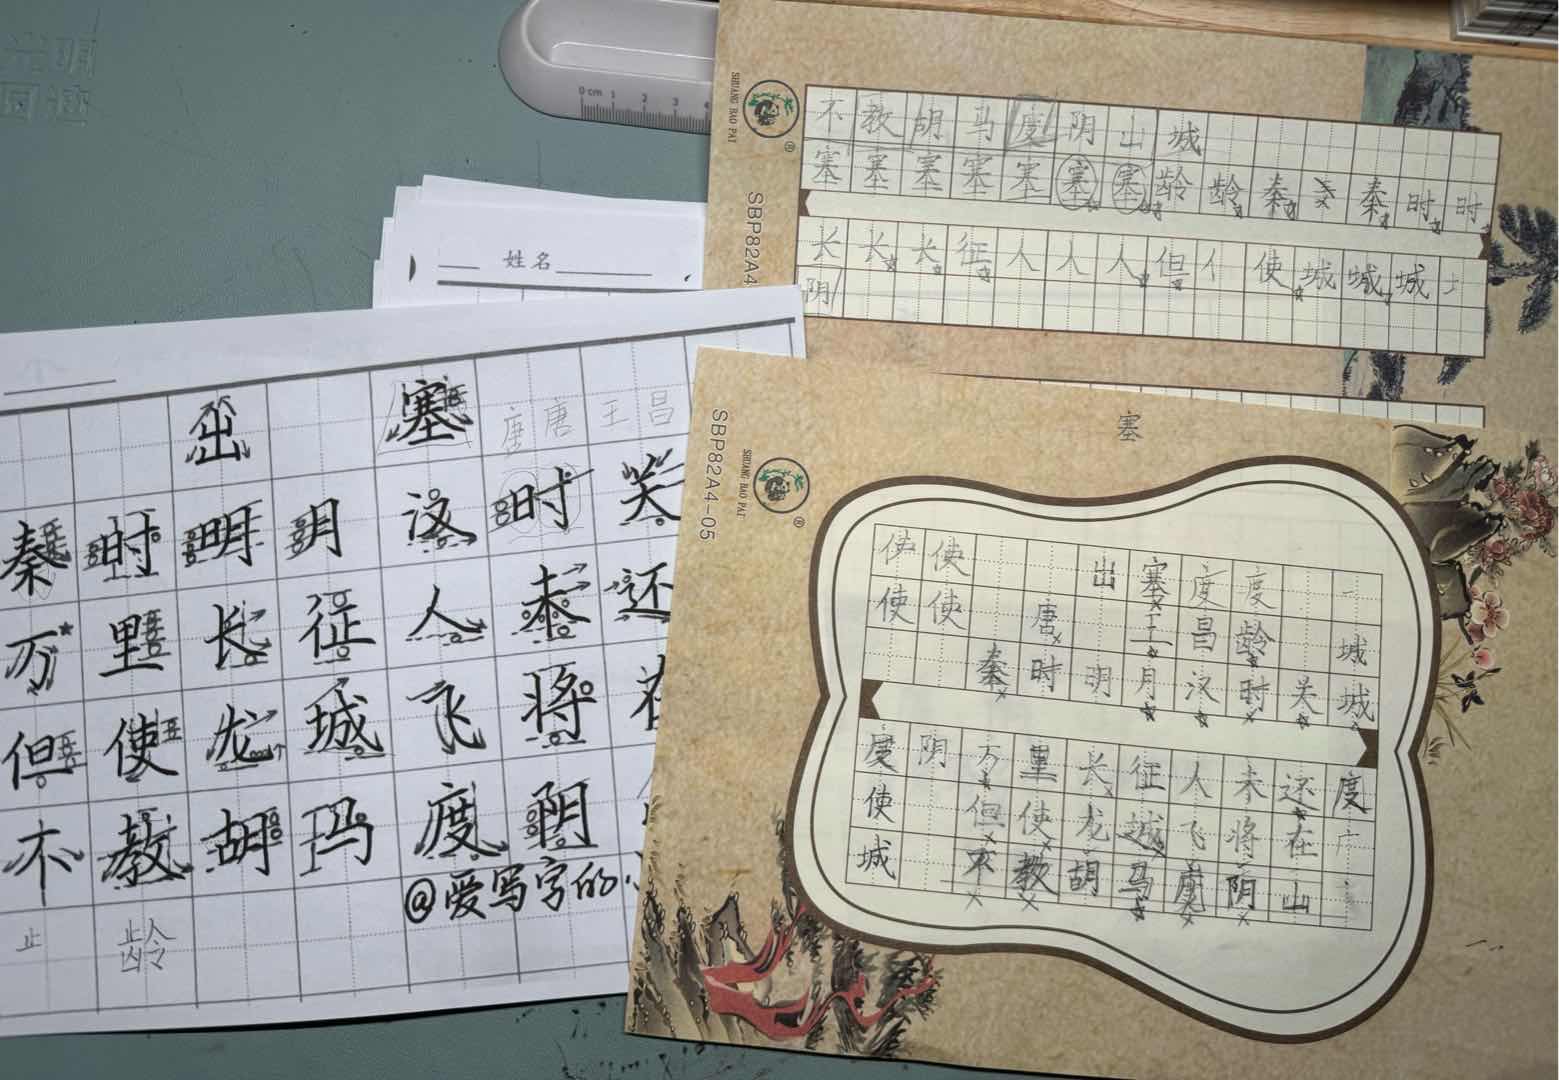 明光
0 cm 1 2 3 4
姓名
SHUANG BAO PAI
®
SBP82A4
不教胡马度阴山城
塞塞塞塞塞塞塞龄龄秦秦时时
长长长征人人人但亻使城城城土
阴
出塞
度唐王昌
秦时明月汉时关
万里长征人未还
但使龙城飞将在
不教胡马度阴
@爱写字的
止龄
SHUANG BAO PAI
®
SBP82A4-05
塞
使使出塞度度
使使唐王昌龄城
秦时明月汉时关城
度阴万里长征人未还度
使但使龙城飞将在广
城不教胡马度阴山